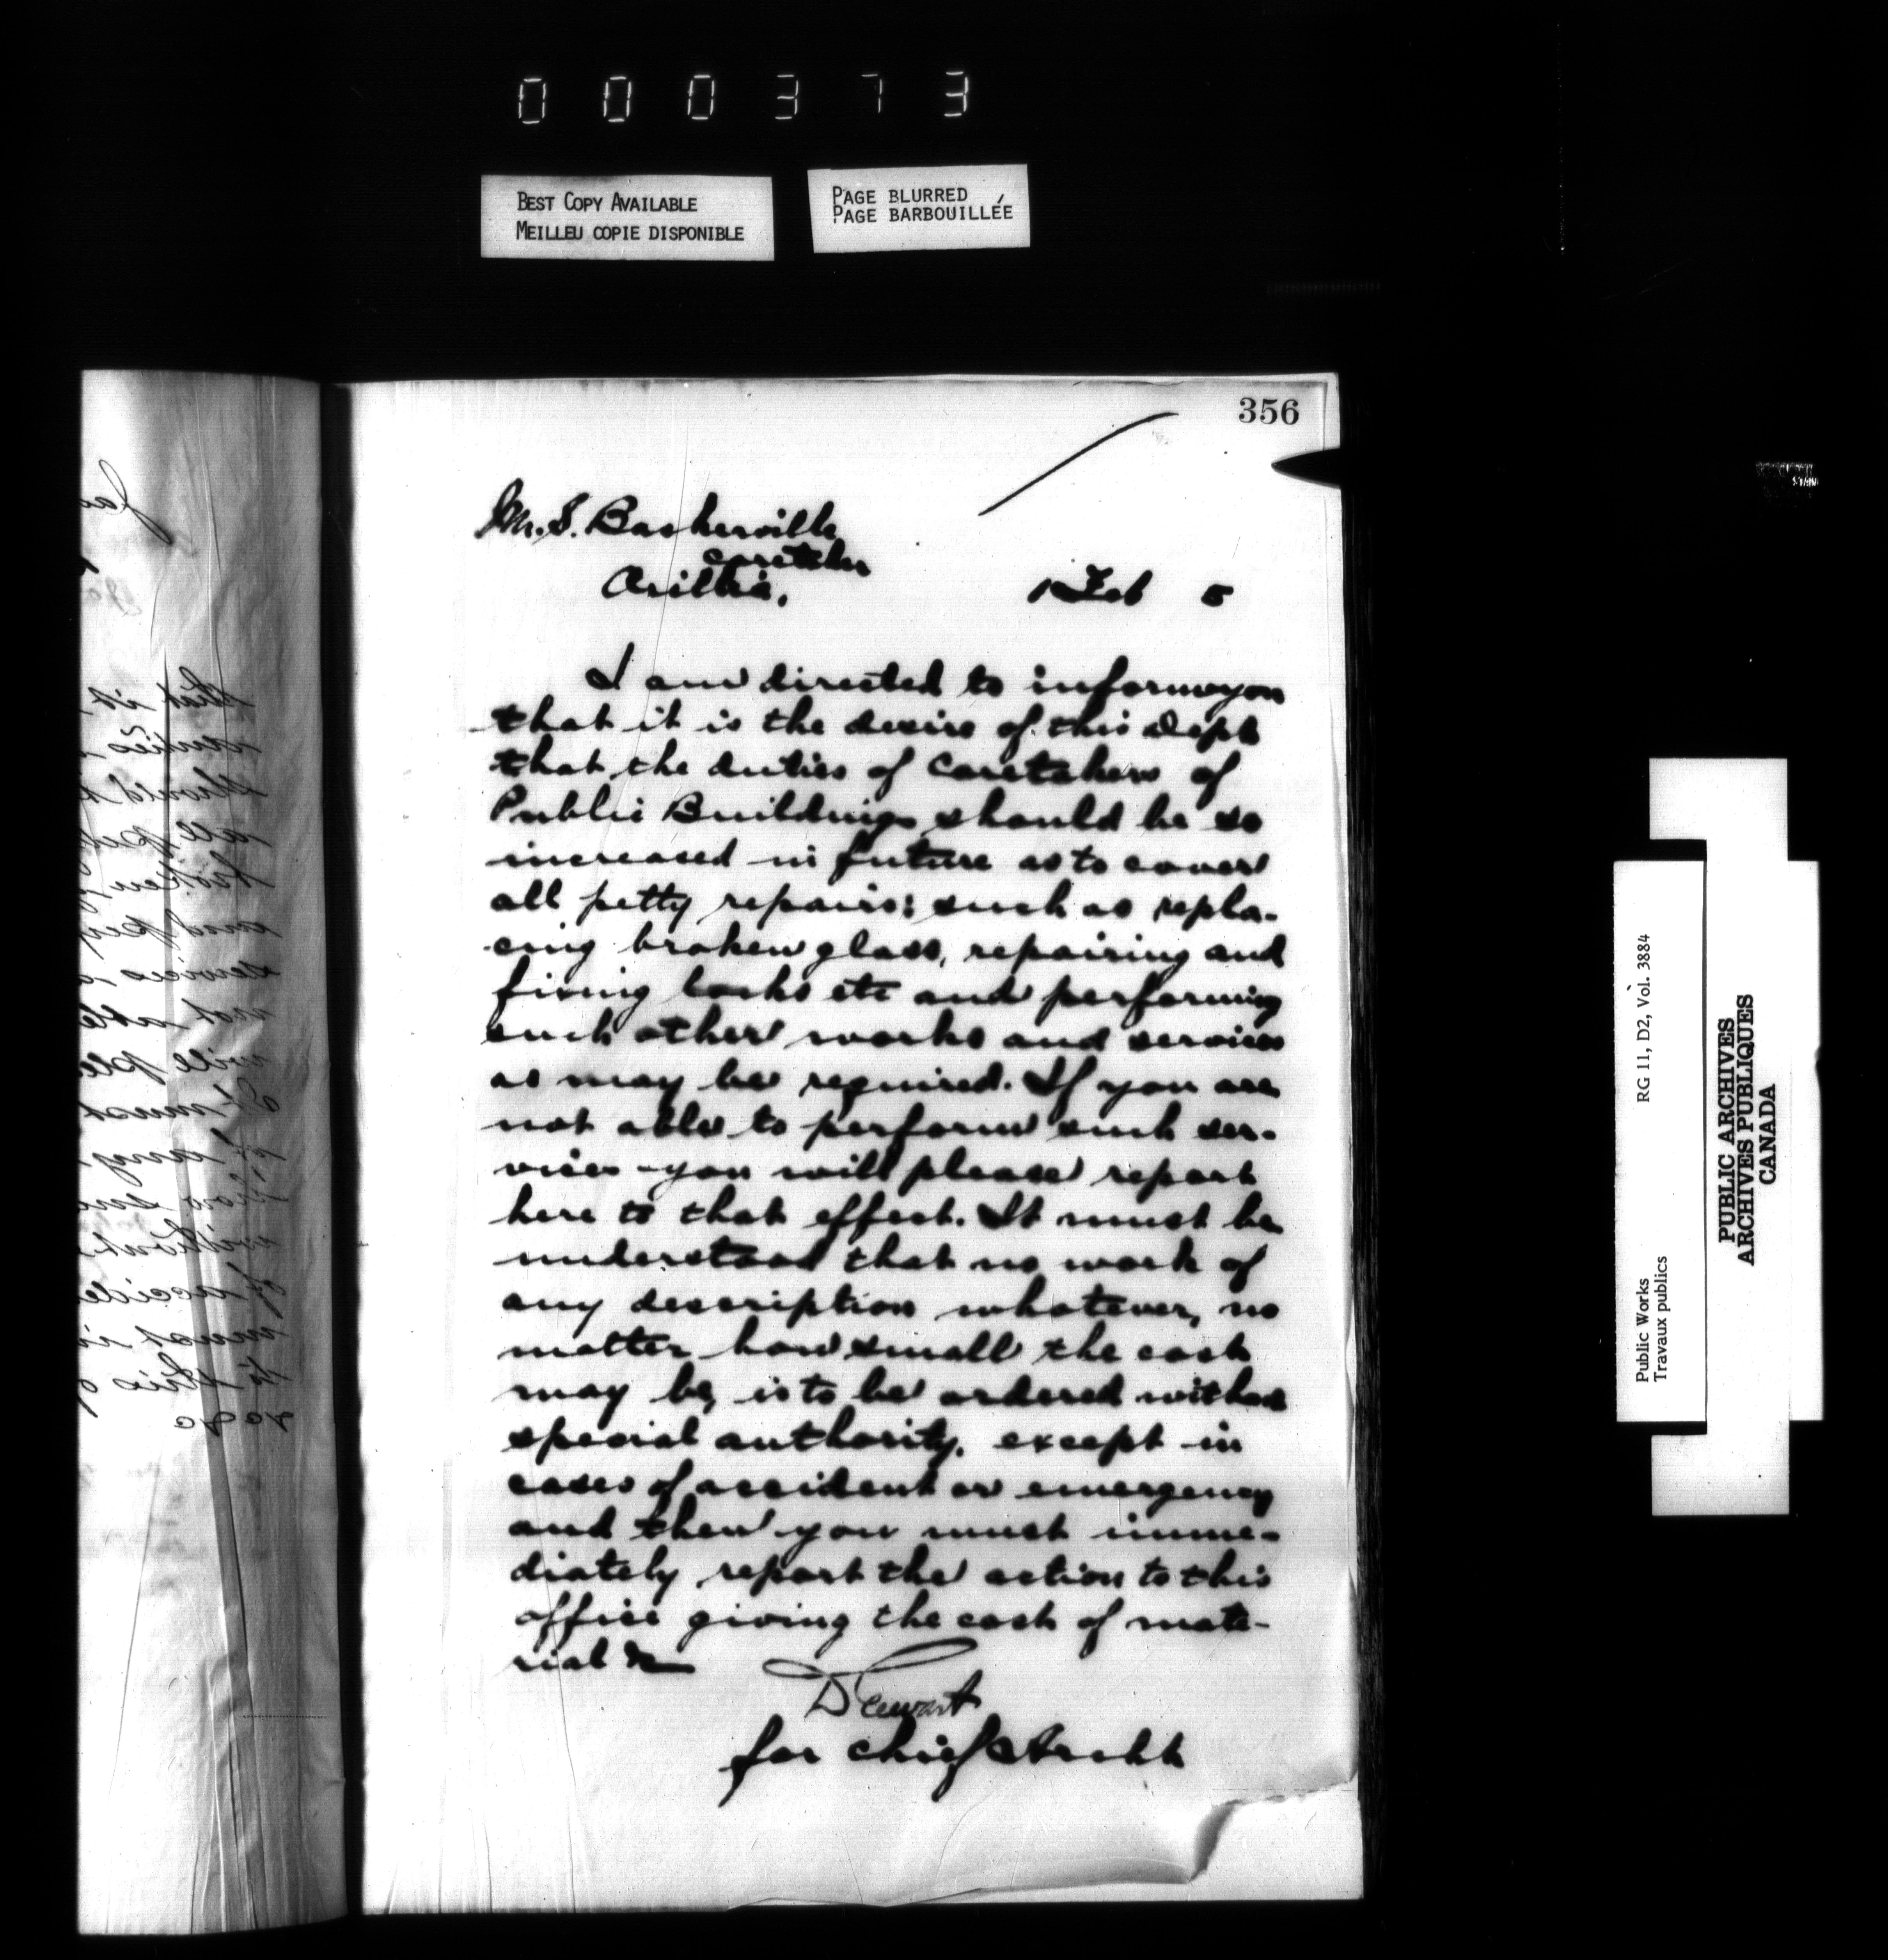 000373
BEST COPY AVAILABLE
MEILLEU COPIE DISPONIBLE
PAGE BLURRED
PAGE BARBOUILLÉE
356
Mr. S. Baskerville
caretaker
Orillia.
1 Feb 5
I am directed to inform you
that it is the desire of this Dept
that the duties of Caretakers of
Public Buildings should be so
increased in future as to cover
all petty repairs; such as repla-
cing broken glass, repairing and
fixing locks etc and performing
such other works and services
as may be required. If you are
not able to perform such ser-
vices you will please report
here to that effect. It must be
understood that no work of
any description whatever, no
matter how small the cost
may be, is to be ordered without
special authority, except in
cases of accident or emergency
and then you must imme-
diately report the action to this
office giving the cost of mate-
rial &c
DEwart
for Chief Archt
Public Works
Travaux publics
RG 11, D2, Vol. 3884
PUBLIC ARCHIVES
ARCHIVES PUBLIQUES
CANADA